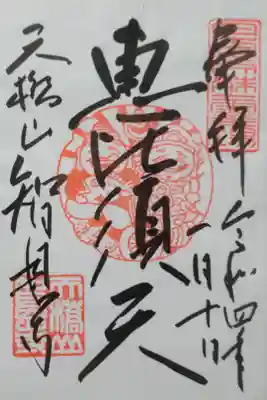 奉拝
令和四年
一月十日
惠比須天
天橋山智恩寺